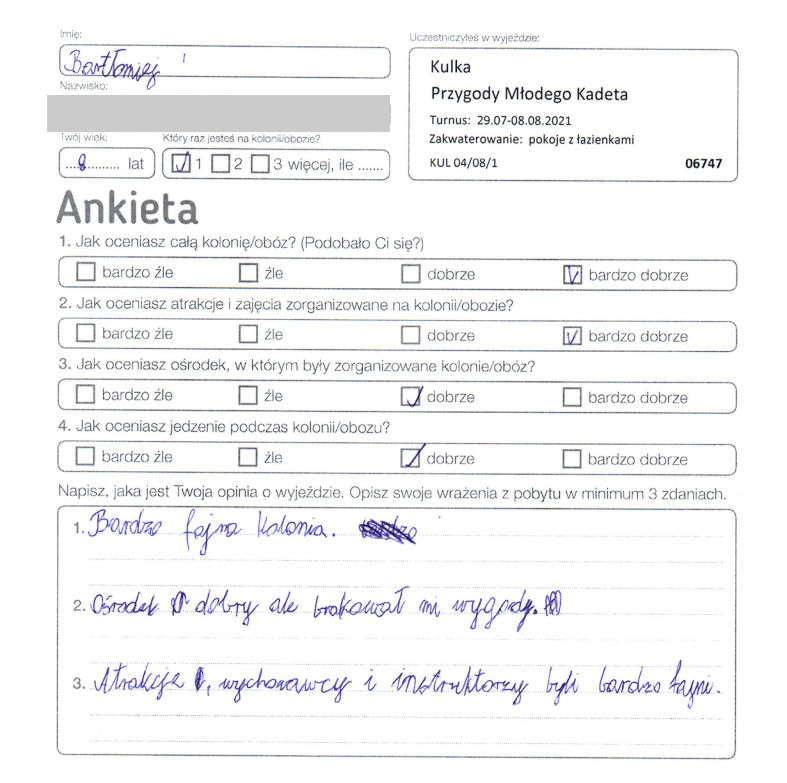 Imię:
Bartłomiej
Nazwisko:
Twój wiek:
Który raz jesteś na kolonii/obozie?
...8......... lat
1 2 3 więcej, ile .......
Uczestniczyłeś w wyjeździe:
Kulka
Przygody Młodego Kadeta
Turnus: 29.07-08.08.2021
Zakwaterowanie: pokoje z łazienkami
KUL 04/08/1 06747
Ankieta
1. Jak oceniasz całą kolonię/obóz? (Podobało Ci się?)
bardzo źle źle dobrze bardzo dobrze
2. Jak oceniasz atrakcje i zajęcia zorganizowane na kolonii/obozie?
bardzo źle źle dobrze bardzo dobrze
3. Jak oceniasz ośrodek, w którym były zorganizowane kolonie/obóz?
bardzo źle źle dobrze bardzo dobrze
4. Jak oceniasz jedzenie podczas kolonii/obozu?
bardzo źle źle dobrze bardzo dobrze
Napisz, jaka jest Twoja opinia o wyjeździe. Opisz swoje wrażenia z pobytu w minimum 3 zdaniach.
1. Bardzo fajna kolonia.
2. Ośrodek dobry ale brakował mi wygody.
3. Atrakcje, wychowawcy i instruktorzy byli bardzo fajni.